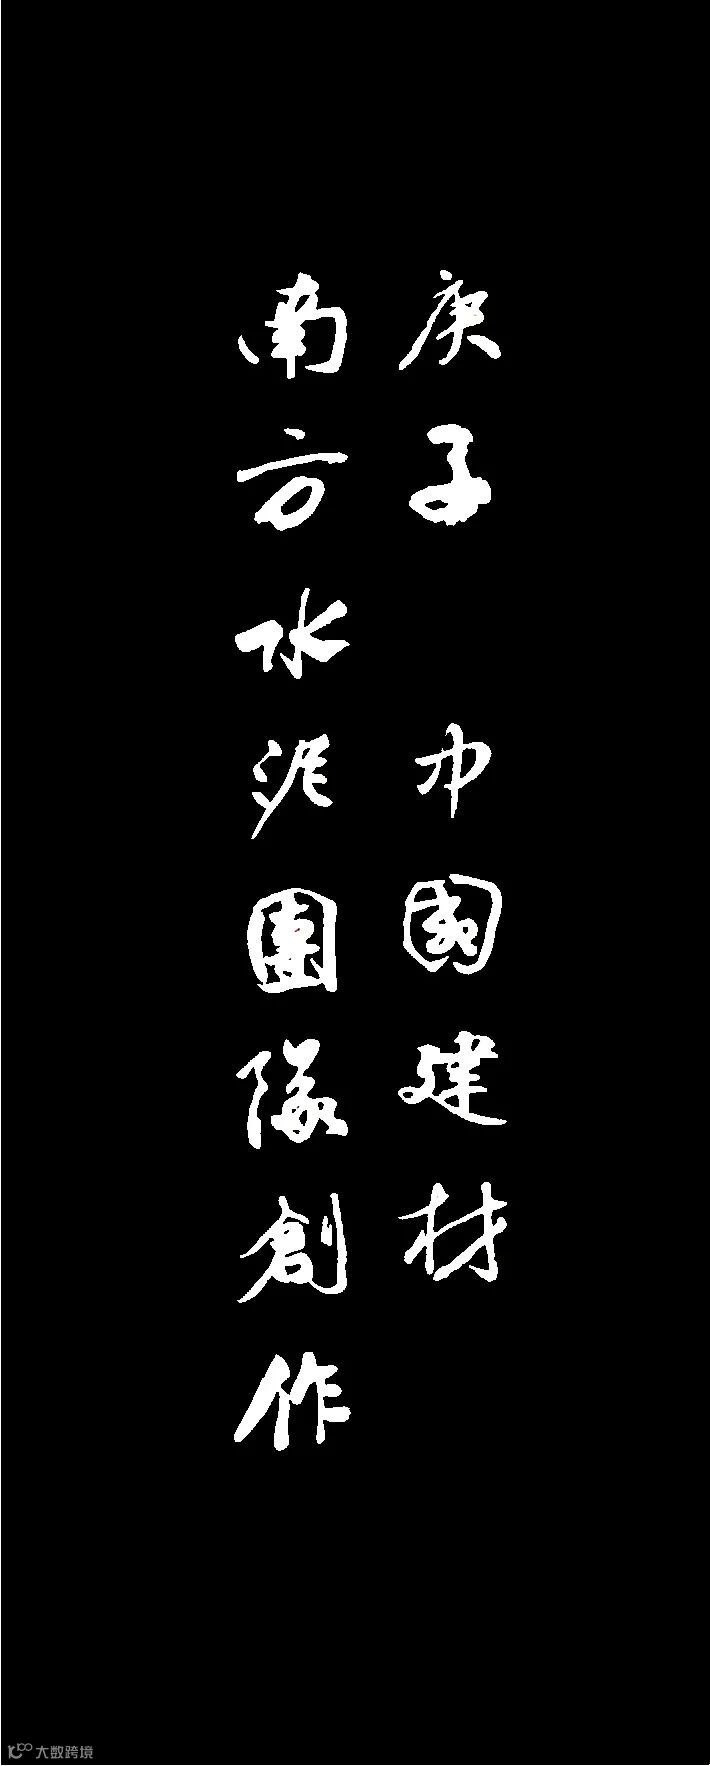 庚子 中國建材
南方水泥團隊創作
大数跨境